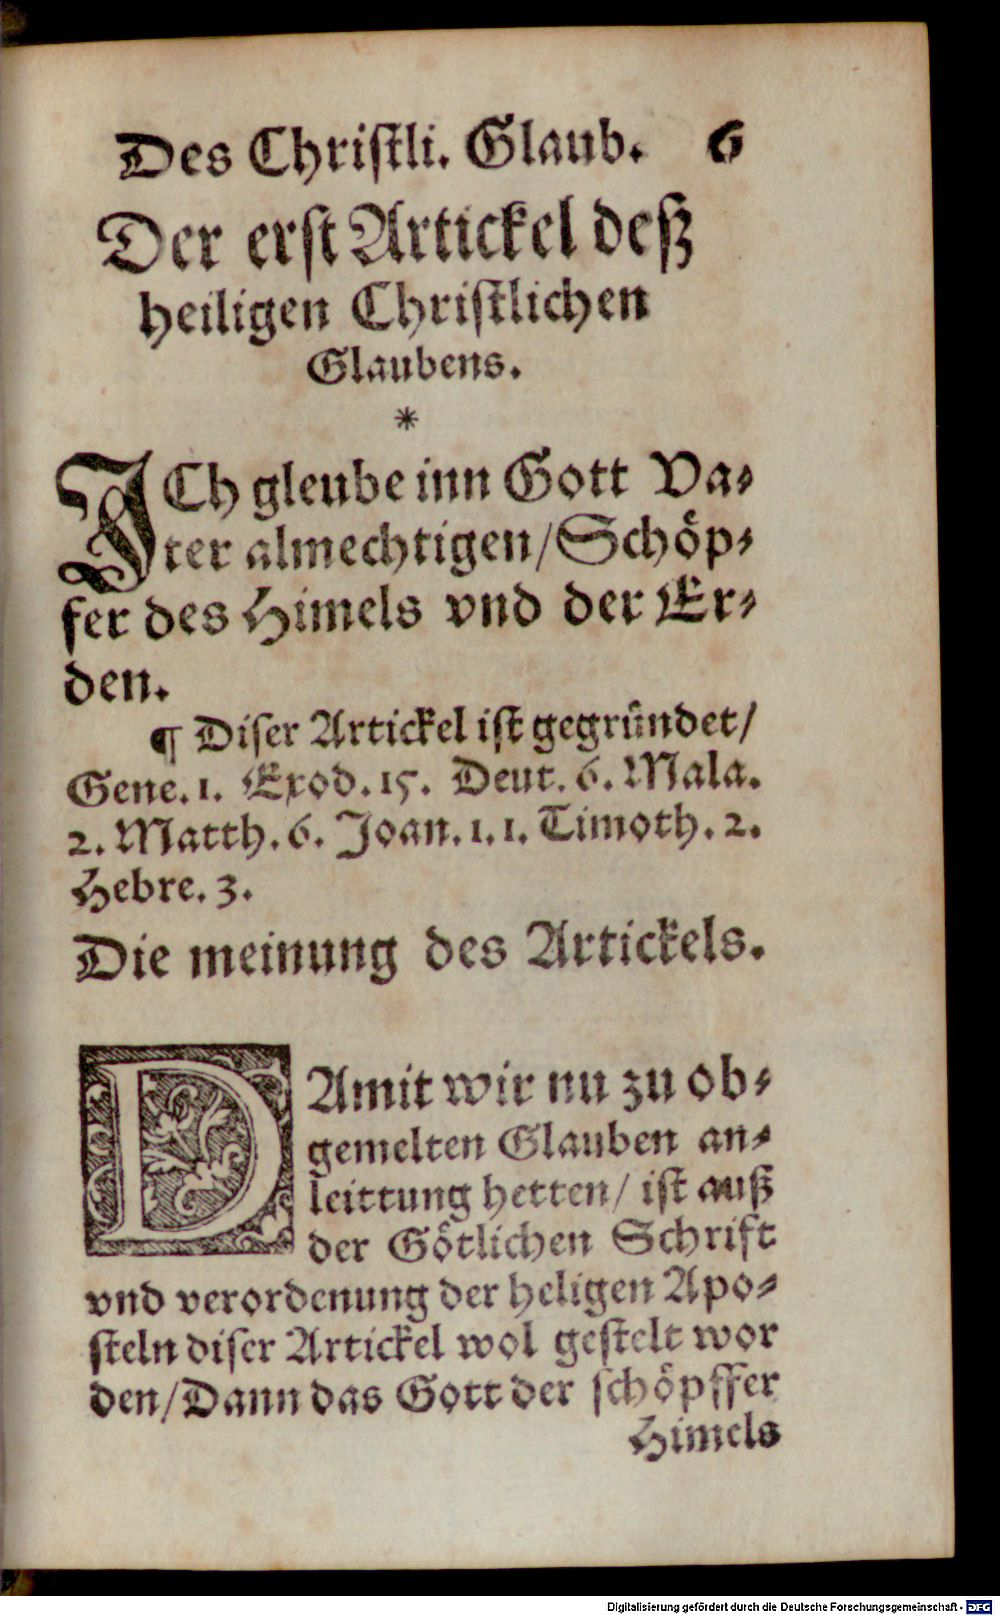 Des Christli. Glaub. 6
Der erst Artickel deß
heiligen Christlichen
Glaubens.
*
ICh gleube inn Gott Va⸗
ter almechtigen/Schöp⸗
fer des Himels vnd der Er⸗
den.
¶ Diser Artickel ist gegründet/
Gene. 1. Exod. 15. Deut. 6. Mala.
2. Matth. 6. Joan. 1. 1. Timoth. 2.
Hebre. 3.
Die meinung des Artickels.
DAmit wir nu zu ob⸗
gemelten Glauben an⸗
leittung hetten/ ist auß
der Götlichen Schrift
vnd verordenung der heligen Apo⸗
steln diser Artickel wol gestelt wor
den/Dann das Gott der schöpffer
Himels
Digitalisierung gefördert durch die Deutsche Forschungsgemeinschaft - DFG